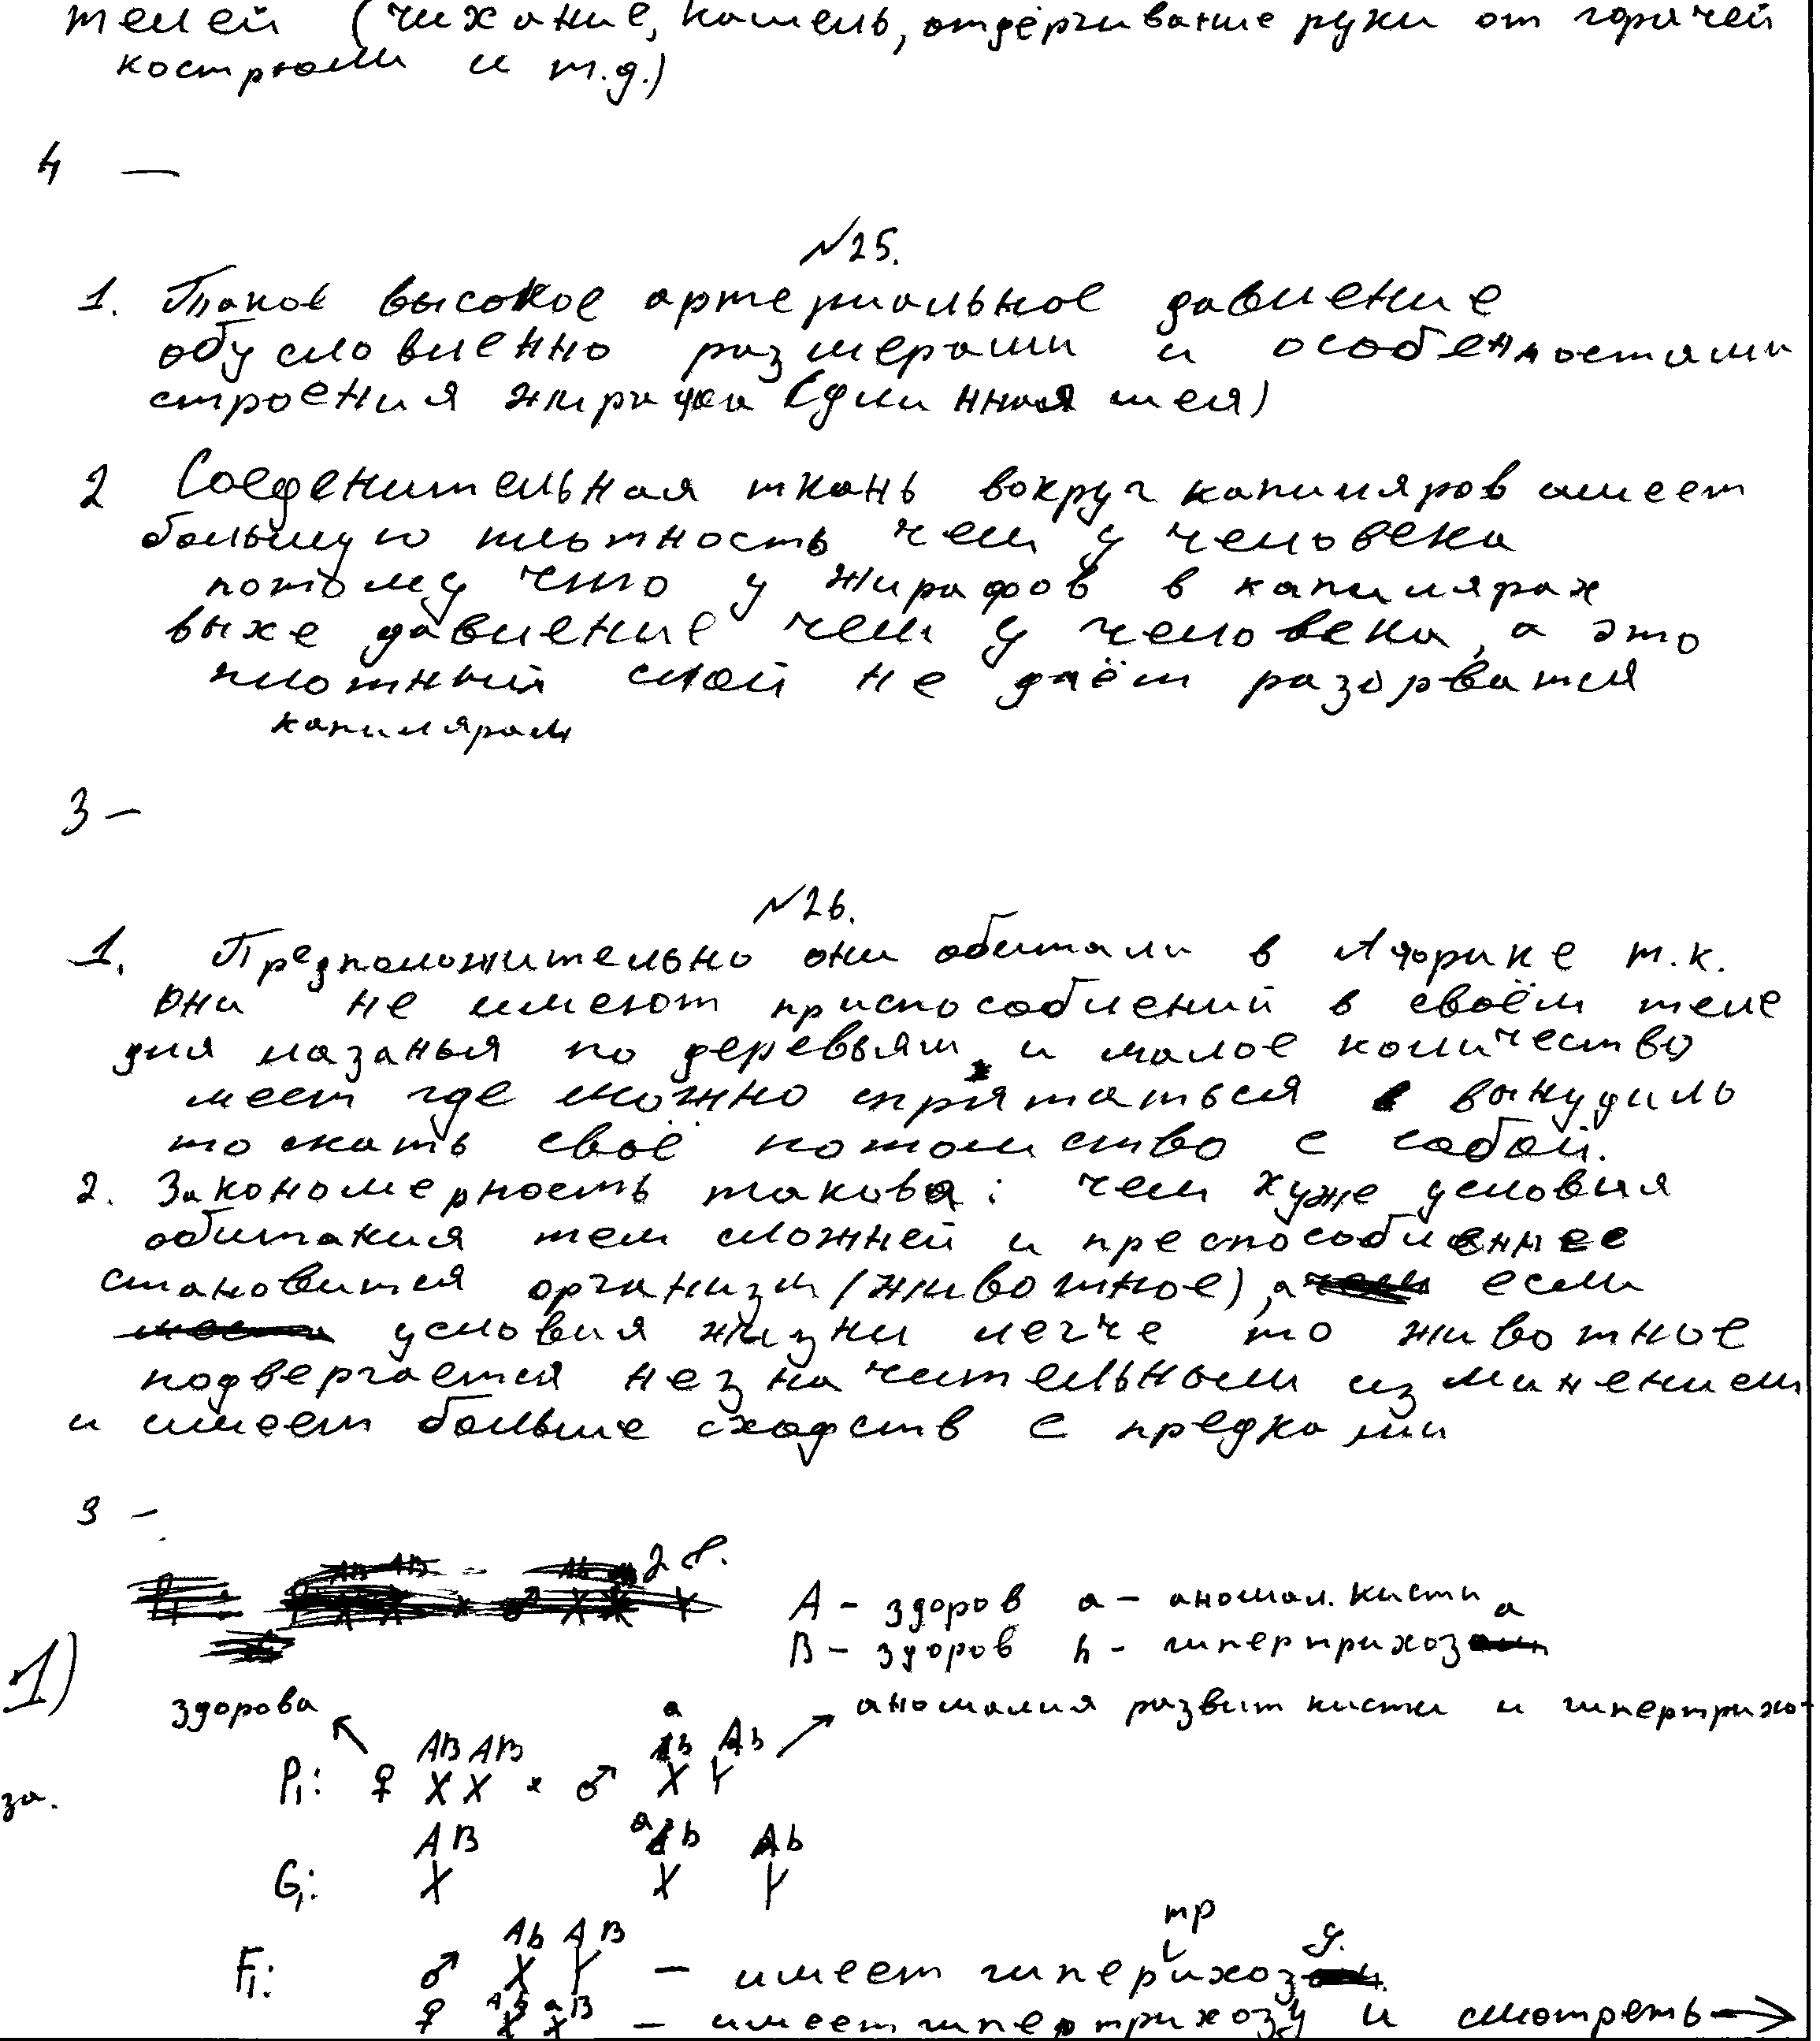 телей (чихание, кашель, отдёргивание руки от горячей
кострюли и т.д.)
4 —
№25.
1. Такое высокое артериальное давление
обусловленно размерами и особенностями
строения жирафа (длинная шея)
2 Соеденительная ткань вокруг капиляров имеет
большую плотность чем у человека
потому что у жирафов в капилярах
выхе давление чем у человека, а это
плотный слой не даёт разорватся
капилярам
3 —
№26.
1. Предположительно они обитали в Африке т.к.
они не имеют приспособлений в своём теле
для лазанья по деревьям, и малое количество
мест где можно спрятаться вынудило
то скать своё потомство с собой.
2. Закономерность такова: чем хуже условия
обитания тем сложней и преспособленнее
становится организм (животное), а если
условия жизни легче то животное
подвергается незначительным изминением
и имеет больше сходств с предками
3 —
28.
A - здоров a - аномал. кисти
B - здоров b - гипертрихоза
1)
здорова
аномалия развит кисти и гипертрихо-
за.
P₁: ♀ X^AB X^AB × ♂ X^ab Y^Ab
G₁: X^AB X^ab Y^Ab
F₁: ♂ X^Ab Y^AB — имеет гипертрихозу.
♀ X^Ab X^aB — имеет гипертрихозу и смотреть →